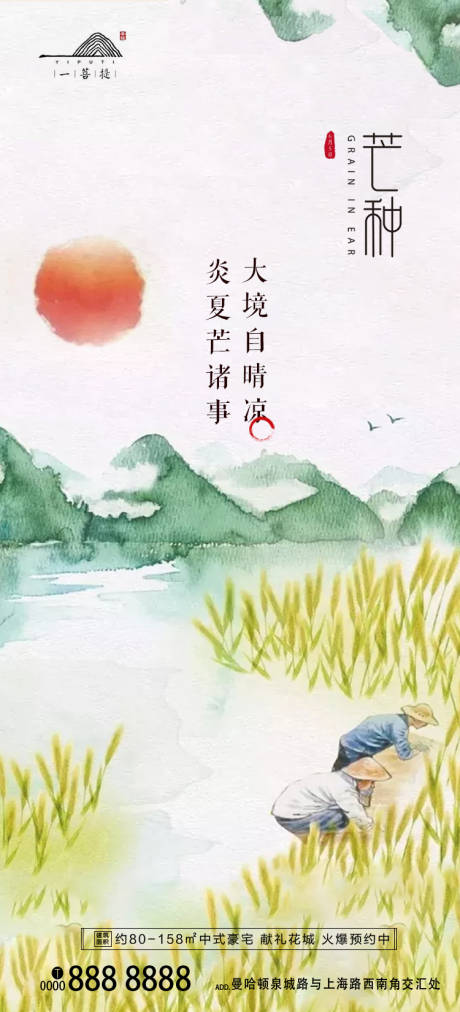 YIPUTI
一菩提
芒种
GRAIN IN EAR
大境自晴凉
炎夏芒诸事
建筑面积 约80-158㎡中式豪宅 献礼花城 火爆预约中
T 0000 888 8888
ADD. 曼哈顿泉城路与上海路西南角交汇处